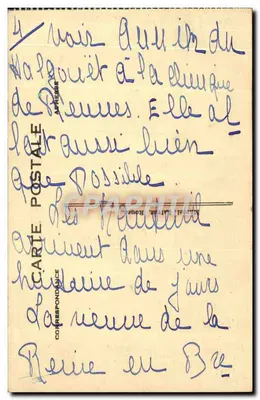 4/ voir Annick du
Halgouët à la clinique
de Rennes. Elle al
lait aussi bien
que possible.
Les
arrivent dans une
huitaine de jours
La venue de la
Reine en Bre
CARTE POSTALE
CORRESPONDANCE
ADRESSE